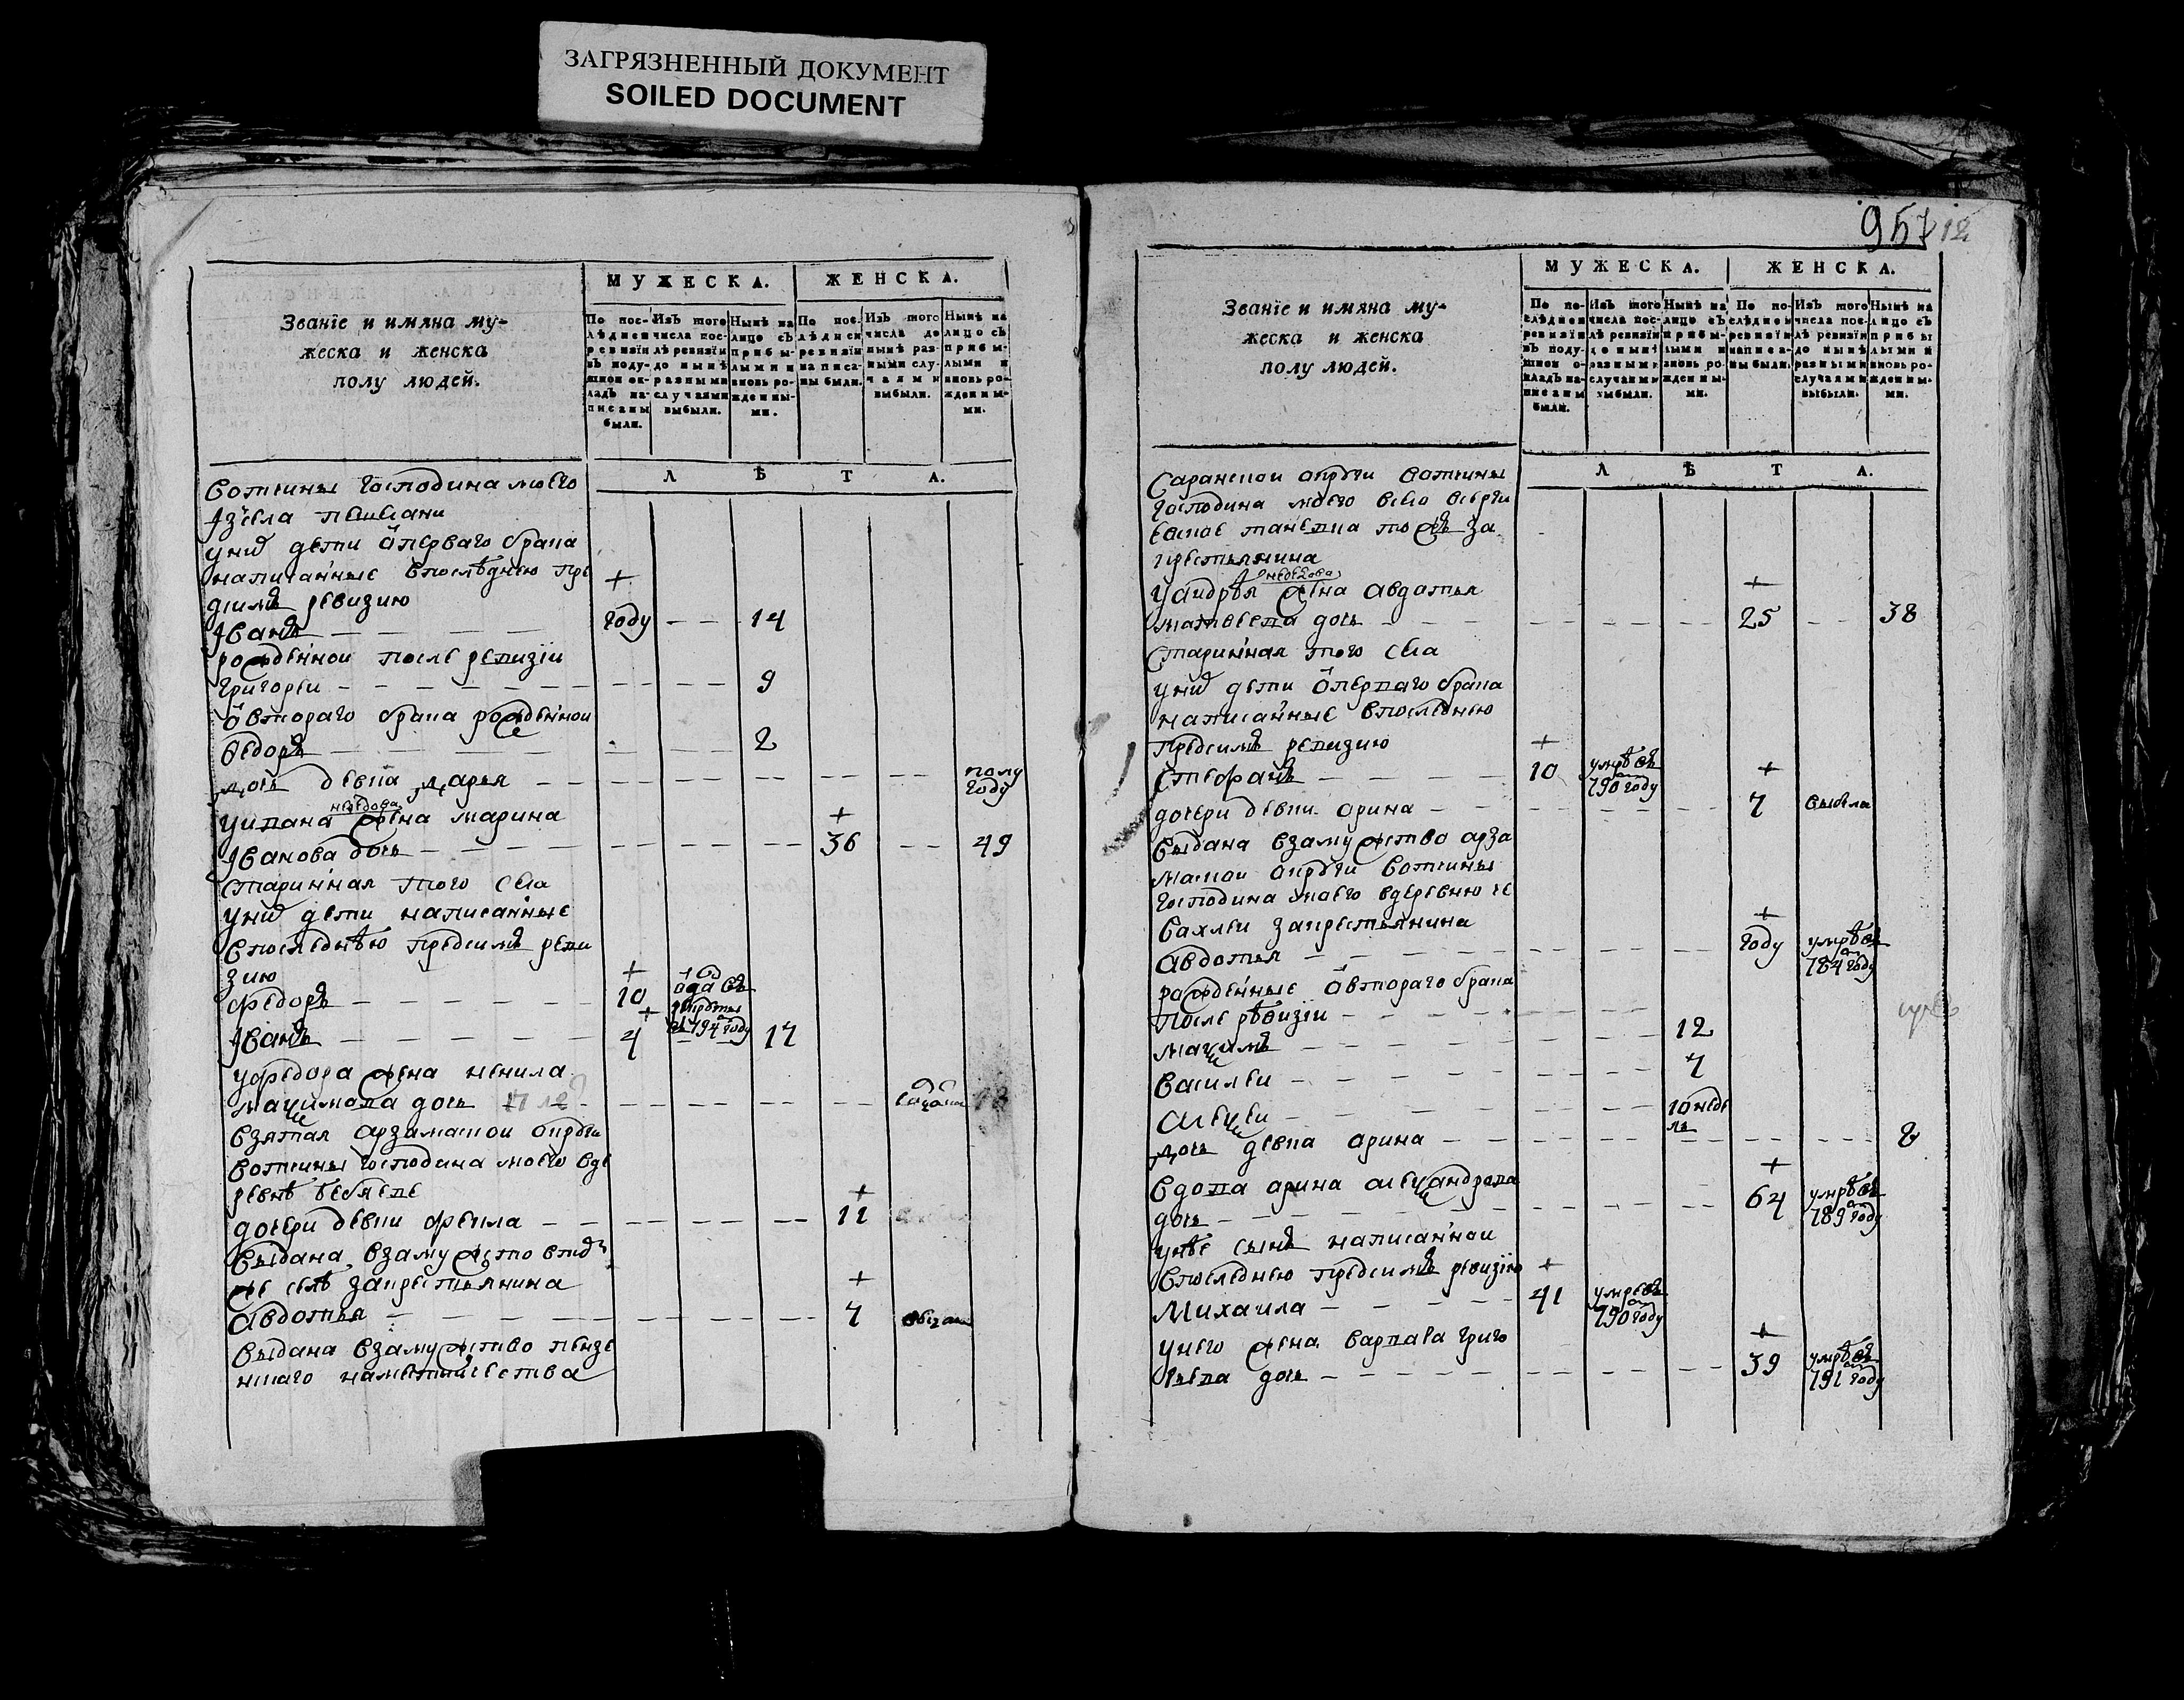 ЗАГРЯЗНЕННЫЙ ДОКУМЕНТ
SOILED DOCUMENT
МУЖЕСКА. ЖЕНСКА.
Званїе и имяна му-
жеска и женска
полу людей.
По послѣдней ревизїи въ подушной окладъ написаны были.
Изъ того числа послѣ ревизїи до нынѣ разными случаями выбыли.
Нынѣ на лицо съ прибылыми и вновь рожденными.
По послѣдней ревизїи написаны были.
Изъ того числа до нынѣ разными случаями выбыли.
Нынѣ на лицо съ прибылыми и вновь рожденными.
Л Ѣ Т А.
вотчины господина моего
унихъ дети отперваго брака
написанные впоследнюю пре
дсимъ ревизию +
Иванъ году 14
рожденной после ревизiи
григорей 9
отвтораго брака рожденной
Ѳедоръ 2
дочь девка дарья полу году
жена марина +
Иванова дочь 36 49
старинная того села
унихъ дети написанные
впоследнѣю предсимъ реви
зию +
Федоръ 10
+ 794 году
Иванъ 4 17
уфедора жена ненила
дочь
взятая арзамаской округи
вотчины господина моего вде
ревнѣ
дочери девки +
12
выдана взамужство
же селѣ закрестьянина +
авдотья 7
выдана взамужство пензе
нскаго наместничества
957 12
МУЖЕСКА. ЖЕНСКА.
Званїе и имяна му-
жеска и женска
полу людей.
По послѣдней ревизїи въ подушной окладъ написаны были.
Изъ того числа послѣ ревизїи до нынѣ разными случаями выбыли.
Нынѣ на лицо съ прибылыми и вновь рожденными.
По послѣдней ревизїи написаны были.
Изъ того числа послѣ ревизїи до нынѣ разными случаями выбыли.
Нынѣ на лицо съ прибылыми и вновь рожденными.
Л Ѣ Т А.
Саранской округи вотчины
господина моего
за
крестьянина
уандрея жена авдотья +
матвеева дочь 25 38
старинная того села
унихъ дети отперваго брака
написанные впоследнею
предсимъ ревизию +
Стефанъ 10 умре въ 790 году +
дочери девки арина 7 выбыла
выдана взамужство арза
маской округи вотчины
господина моего вдеревню
закрестьянина +
авдотья году умре въ 784 году
рожденные отвтораго брака
после ревизiи
максимъ 12
василей 7
алексей 10 неде ль
дочь девка арина 2
вдова арина александрова +
дочь 64 умре въ 789 году
унее сынъ написанной
впоследнею предсимъ ревизию +
Михаила 41 умре въ 790 году
унего жена варвара григо +
рьева дочь 39 умре въ 791 году